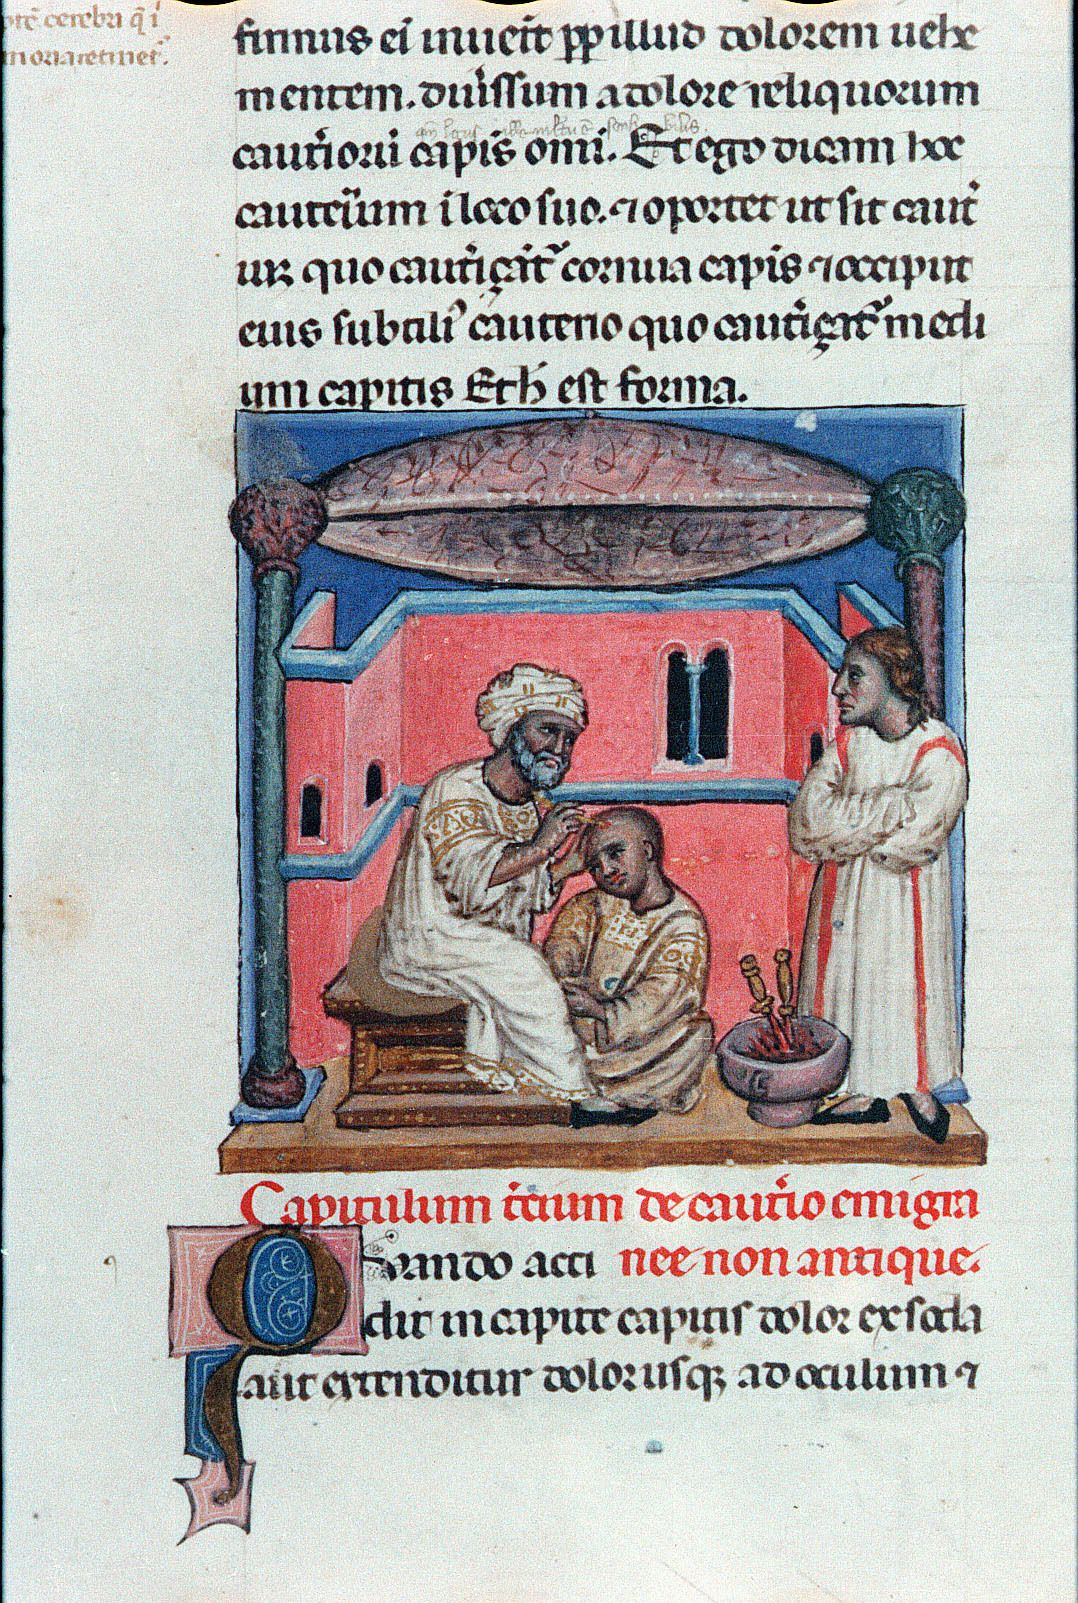 cerebri q̄ i
firmus ei inuenit pp illud dolorem uehe
mentem. diuīssum a dolore reliquorum
cauťioru capis omī. Et ego dicam hoc
cauteriũm i loco suo. ⁊ oportet ut sit cauť
ur quo cauťiçat᷑ cornua capis ⁊ occiput
eius subtili᷒ cauterio quo cauťiçat᷑ medi
um capitis Et h̄ est forma.
Capitulum ťcium de cauťio emigra
nee non antique.
Quando acci
dit in capite capitis dolor ex soda
aut extenditur dolor usq; ad oculum ⁊